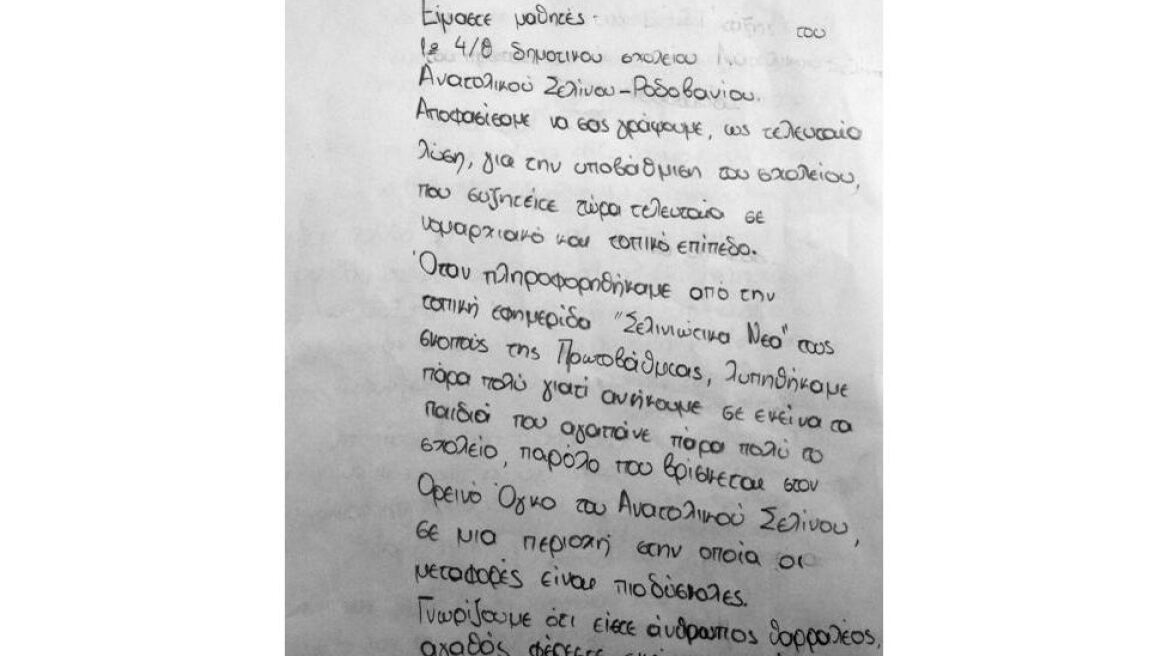 Είμαστε μαθητές του
1ο 4/θ δημοτικού σχολείου
Ανατολικού Σελίνου-Ροδοβανίου.
Αποφασίσαμε να σας γράψουμε, ως τελευταία
λύση, για την υποβάθμιση του σχολείου,
που συζητείτε τώρα τελευταία σε
νομαρχιακό και τοπικό επίπεδο.
Όταν πληροφορηθήκαμε από την
τοπική εφημερίδα "Σελινιώτικα Νέα" τους
σκοπούς της Πρωτοβάθμιας, λυπηθήκαμε
πάρα πολύ γιατί ανήκουμε σε εκείνα τα
παιδιά που αγαπάνε πάρα πολύ το
σχολείο, παρόλο που βρίσκεται στον
Ορεινό Όγκο του Ανατολικού Σελίνου,
σε μια περιοχή στην οποία οι
μεταφορές είναι πιο δύσκολες.
Γνωρίζουμε ότι είστε άνθρωπος θαρραλέος,
αγαθός φέρεστε